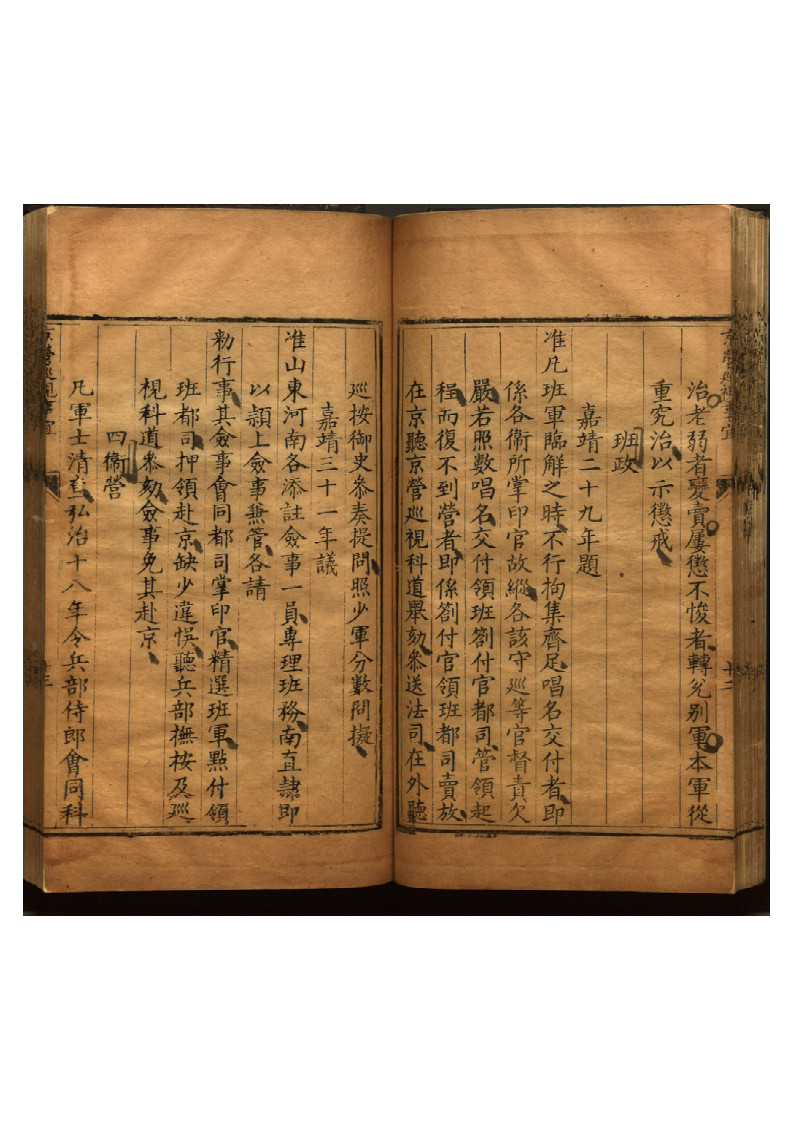 治老弱者變賣屢懲不悛者轉兌别軍本軍從
重究治以示懲戒
班政
嘉靖二十九年題
准凡班軍臨解之時不行拘集齊足唱名交付者即
係各衛所掌印官故縱各該守巡等官督責欠
嚴若照數唱名交付領班劄付官都司管領起
程而復不到營者即係劄付官領班都司賣放
在京聽京營巡視科道舉劾叅送法司在外聽
十二
巡按御史叅奏提問照少軍分數問擬
嘉靖三十一年議
准山東河南各添註僉事一員專理班務南直隸即
以潁上僉事兼管各請
勑行事其僉事會同都司掌印官精選班軍點付領
班都司押領赴京缺少違悞聽兵部撫按及巡
視科道叅劾僉事免其赴京
四衛營
凡軍士清查弘治十八年令兵部侍郎會同科
京營巡視事宜
十三